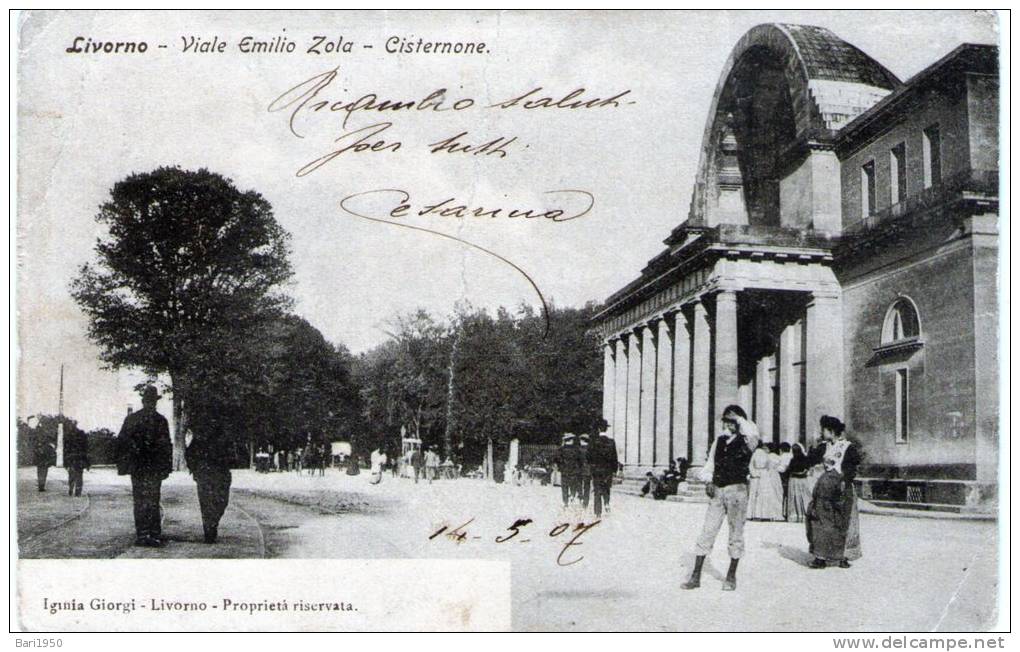 Livorno - Viale Emilio Zola - Cisternone.
Ricambio saluti
per tutti
Cesarina
14-5-07
Iginia Giorgi - Livorno - Proprietà riservata.
Bari1950
www.delcampe.net